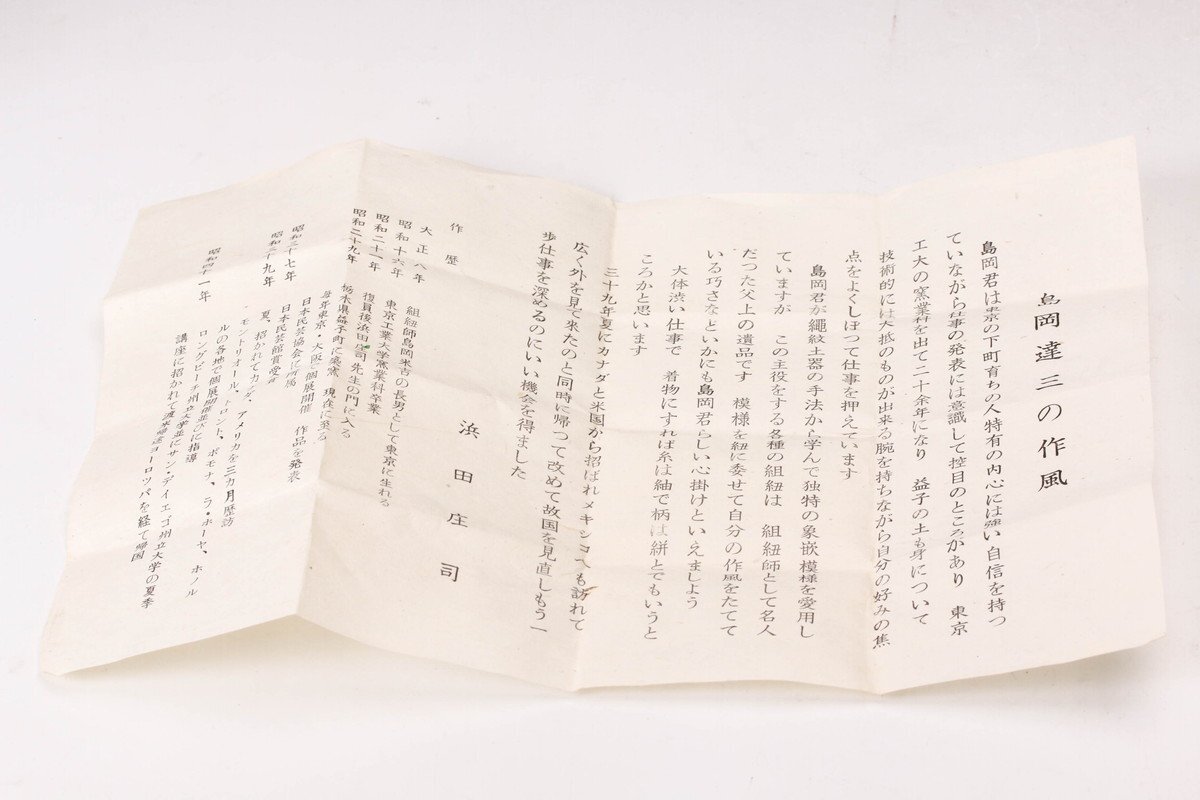 島岡達三の作風
島岡君は東京の下町育ちの人特有の内心には強い自信を持つ
ていながら仕事の発表には意識して控目のところがあり　東京
工大の窯業科を出て二十余年になり　益子の土も身について
技術的には大抵のものが出来る腕を持ちながら自分の好みの焦
点をよくしぼつて仕事を押えています
島岡君が縄紋土器の手法から学んで独特の象嵌模様を愛用し
ていますが　この主役をする各種の組紐は　組紐師として名人
だった父上の遺品です　模様を紐に委せて自分の作風をたてて
いる巧さなどいかにも島岡君らしい心掛けといえましよう
大体渋い仕事で　着物にすれば糸は紬で柄は絣とでもいうと
ころかと思います
三十九年夏にカナダと米国から招ばれメキシコへも訪れて
広く外を見て来たのと同時に帰つて改めて故国を見直しもう一
歩仕事を深めるのにいい機会を得ました
浜田庄司
作歴
大正八年　組紐師島岡米吉の長男として東京に生れる
昭和十六年　東京工業大学窯業科卒業
昭和二十一年　復員後浜田庄司先生の門に入る
昭和二十九年　栃木県益子町に築窯　現在に至る
毎年東京・大阪で個展開催　作品を発表
日本民芸協会に所属
昭和三十七年　日本民芸館賞受賞
昭和三十九年　夏、招かれてカナダ、アメリカを三カ月歴訪
モントリール、トロント、ポモナ、ラ・ホーヤ、ホノル
ルの各地で個展開催並びに指導
昭和四十一年　ロングビーチ州立大学並にサン・デイエゴ州立大学の夏季
講座に招かれて渡米帰途ヨーロッパを経て帰国